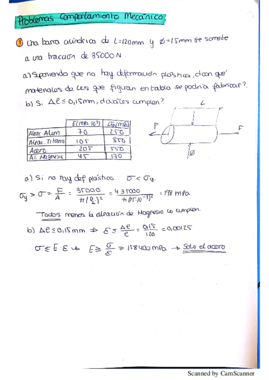 Problemas Comportamiento Mecánico
① Una barra cilíndrica de L=120mm y Ø=15mm se somete
a una tracción de 35000N
a) Suponiendo que no hay deformación plástica. ¿Con que
materiales de los que figuran en tabla se podría fabricar?
b) Si Δl≤0,15mm, ¿cuáles cumplen?
E(MPa·10³)
Aleac Alum 70 250
Aleac Titanio 105 850
Acero 205 550
Al. Magnesio 45 170
L
P
F
a) Si no hay def plástica σ < σy.
σy > σ = F/A = 35000/π(D/2)² = 4·35000/π(15·10⁻³)² = 198 MPa
Todos menos la aleación de Magnesio lo cumplen.
b) Δl≤0,15mm ⇒ ε = Δl/l = 0,15/120 = 0,00125
σ = E·ε → E ≥ σ/ε = 158400 MPa → Solo el acero
Scanned by CamScanner